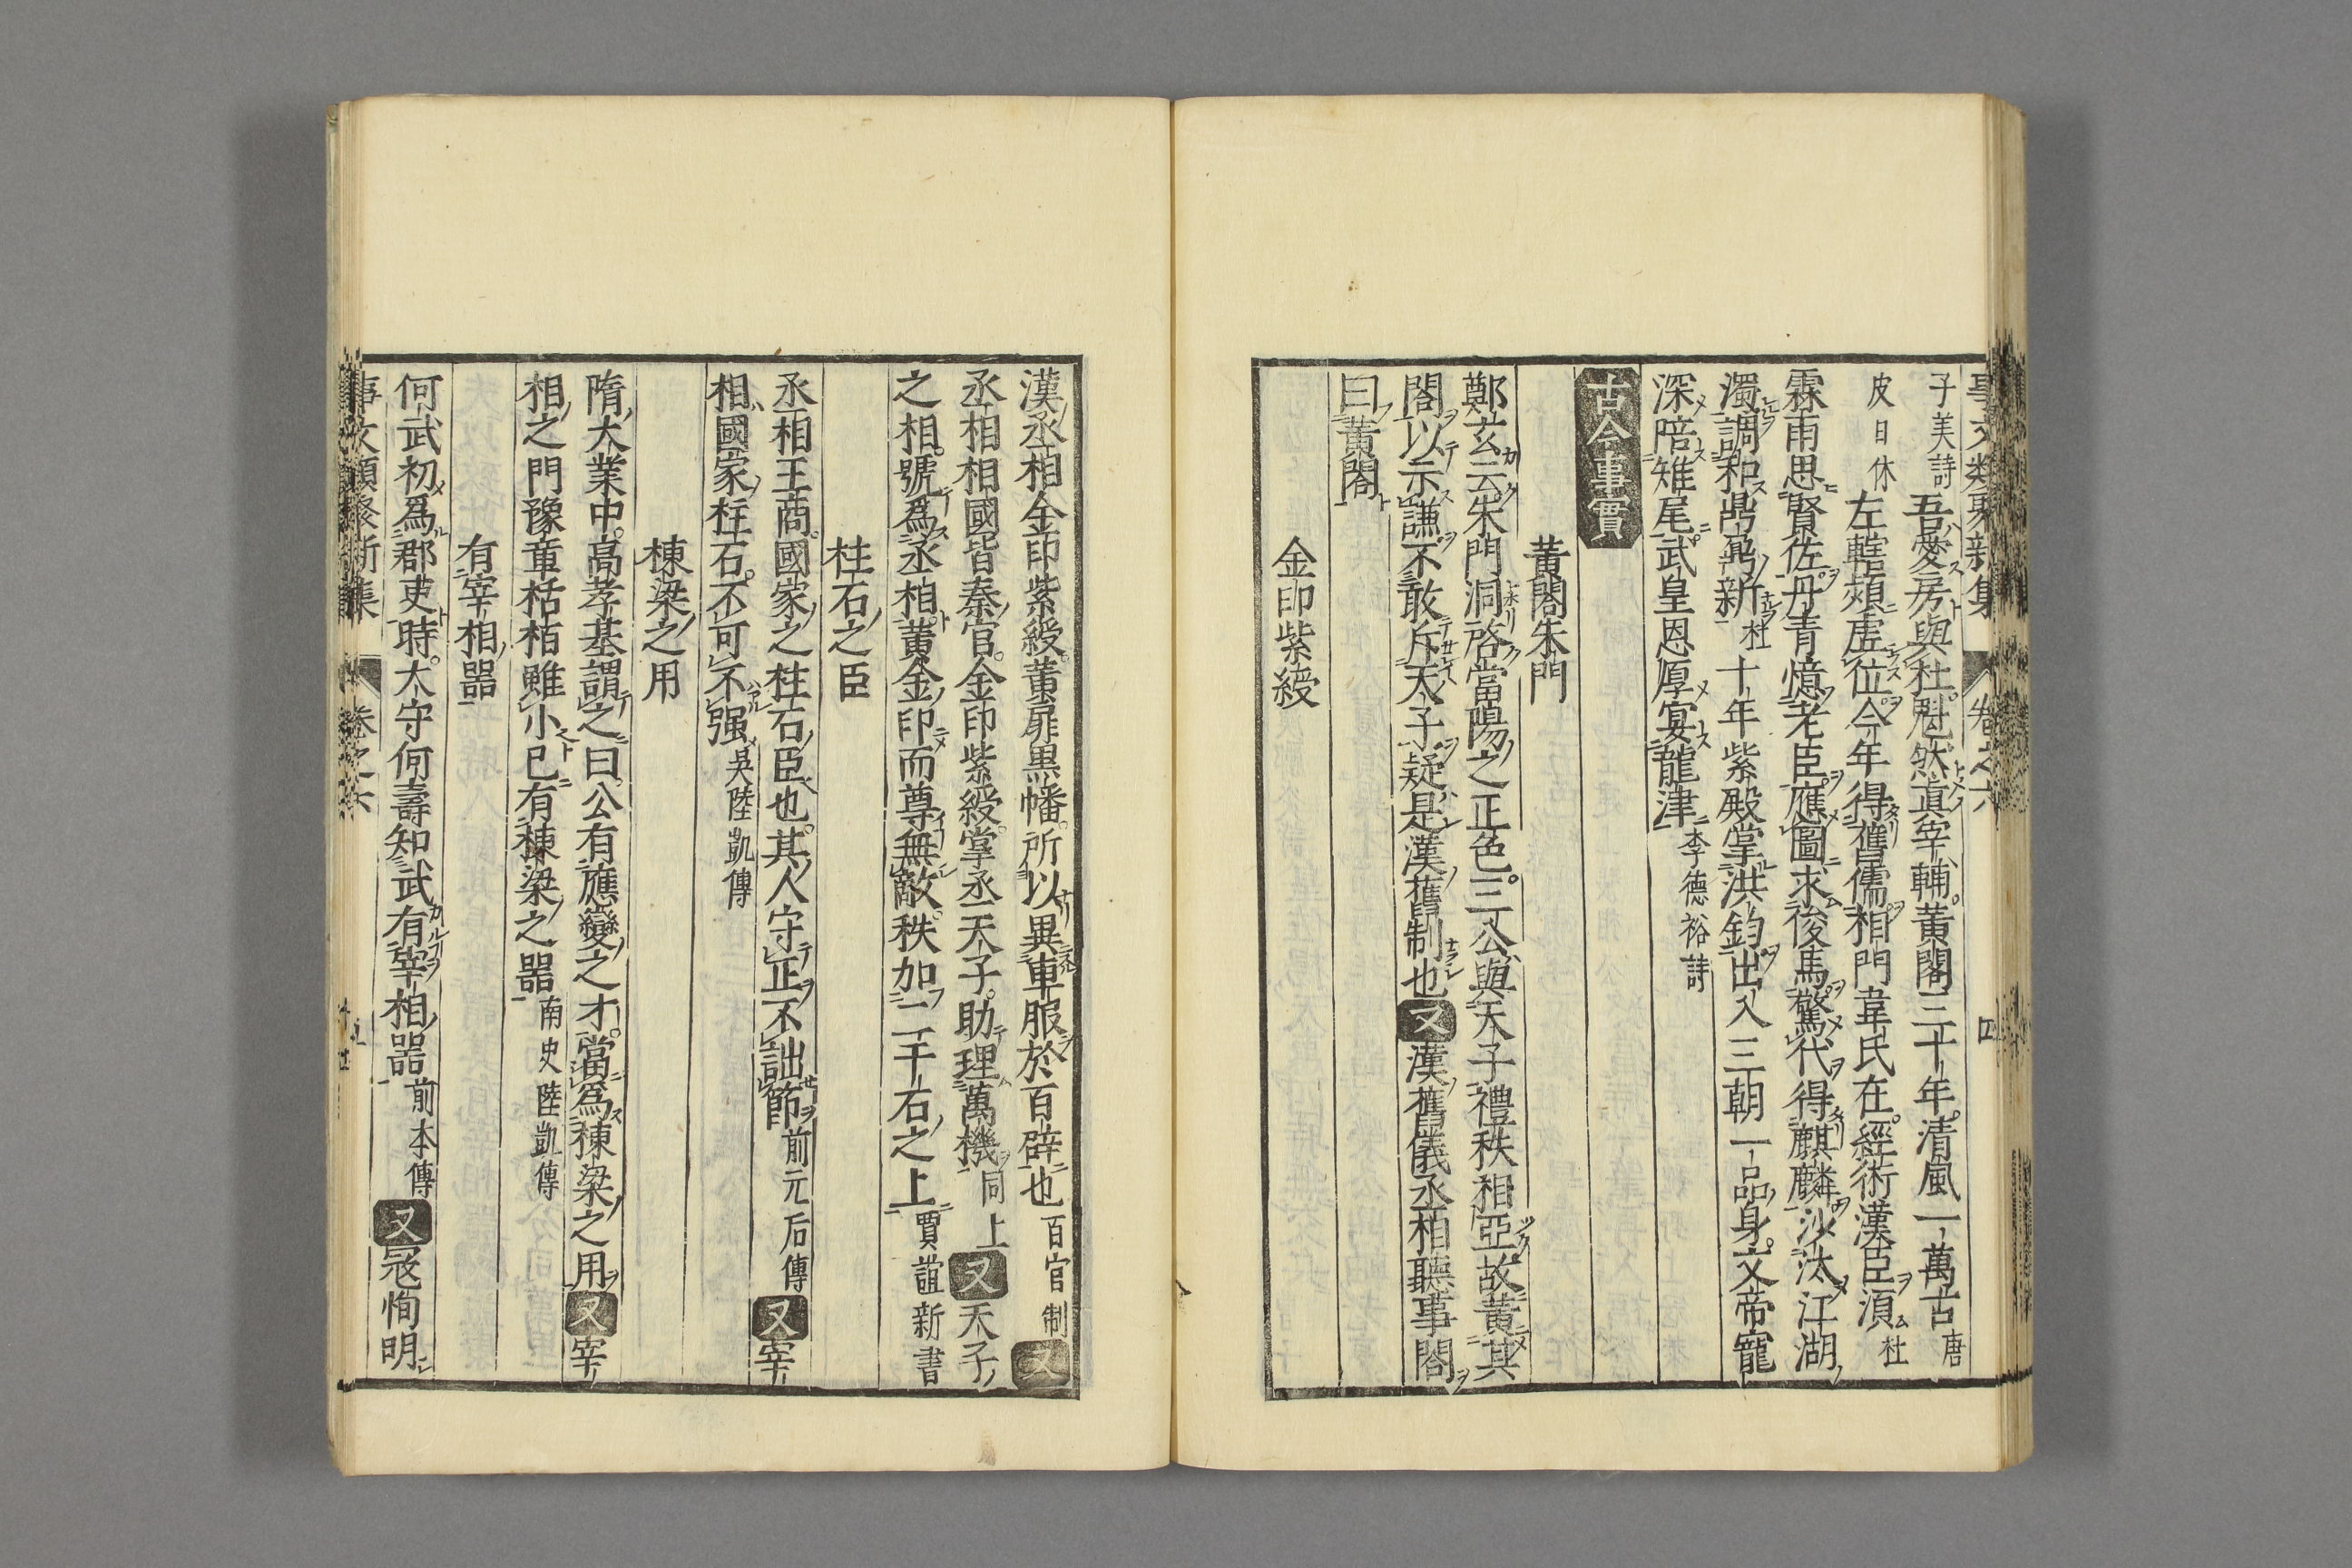 事文類聚新集 卷之六 四
子美詩 吾愛房與杜魁然眞宰輔黃閣三十年清風一萬古 唐
皮日休 左轄頻虛位今年得舊儒相門韋氏在經術漢臣須 杜
霖雨思賢佐丹青憶老臣應圖求後馬驚代得麒麟沙汰江湖
濁調和鼎鼐新 杜 十年紫殿掌洪鈞出入三朝一品身文帝寵
深陪雉尾武皇恩厚宴龍津 李德裕詩
古今事實
黃閣朱門
鄭玄云朱門洞啓當陽之正色三公與天子禮秩相亞故黃其
閣以示謙不敢斥天子疑是漢舊制也 又 漢舊儀丞相聽事閣
曰黃閣
金印紫綬
漢丞相金印紫綬黃扉黑幡所以異車服於百辟也 百官制 又
丞相相國皆秦官金印紫綬掌丞天子助理萬機 同上 又 天子
之相號爲丞相黃金印而尊無敵秩加二千石之上 賈誼新書
柱石之臣
丞相王商國家之柱石臣也其人守正不詘節 前元后傳 又 宰
相國家柱石不可不强 吳陸凱傳
棟梁之用
隋大業中高孝基謂之曰公有應變之才當爲棟梁之用 又 宰
相之門豫童栝栢雖小已有棟梁之器 南史陸凱傳
有宰相器
何武初爲郡吏時太守何壽知武有宰相器 前本傳 又 寇恂明
事文類聚新集 卷之六